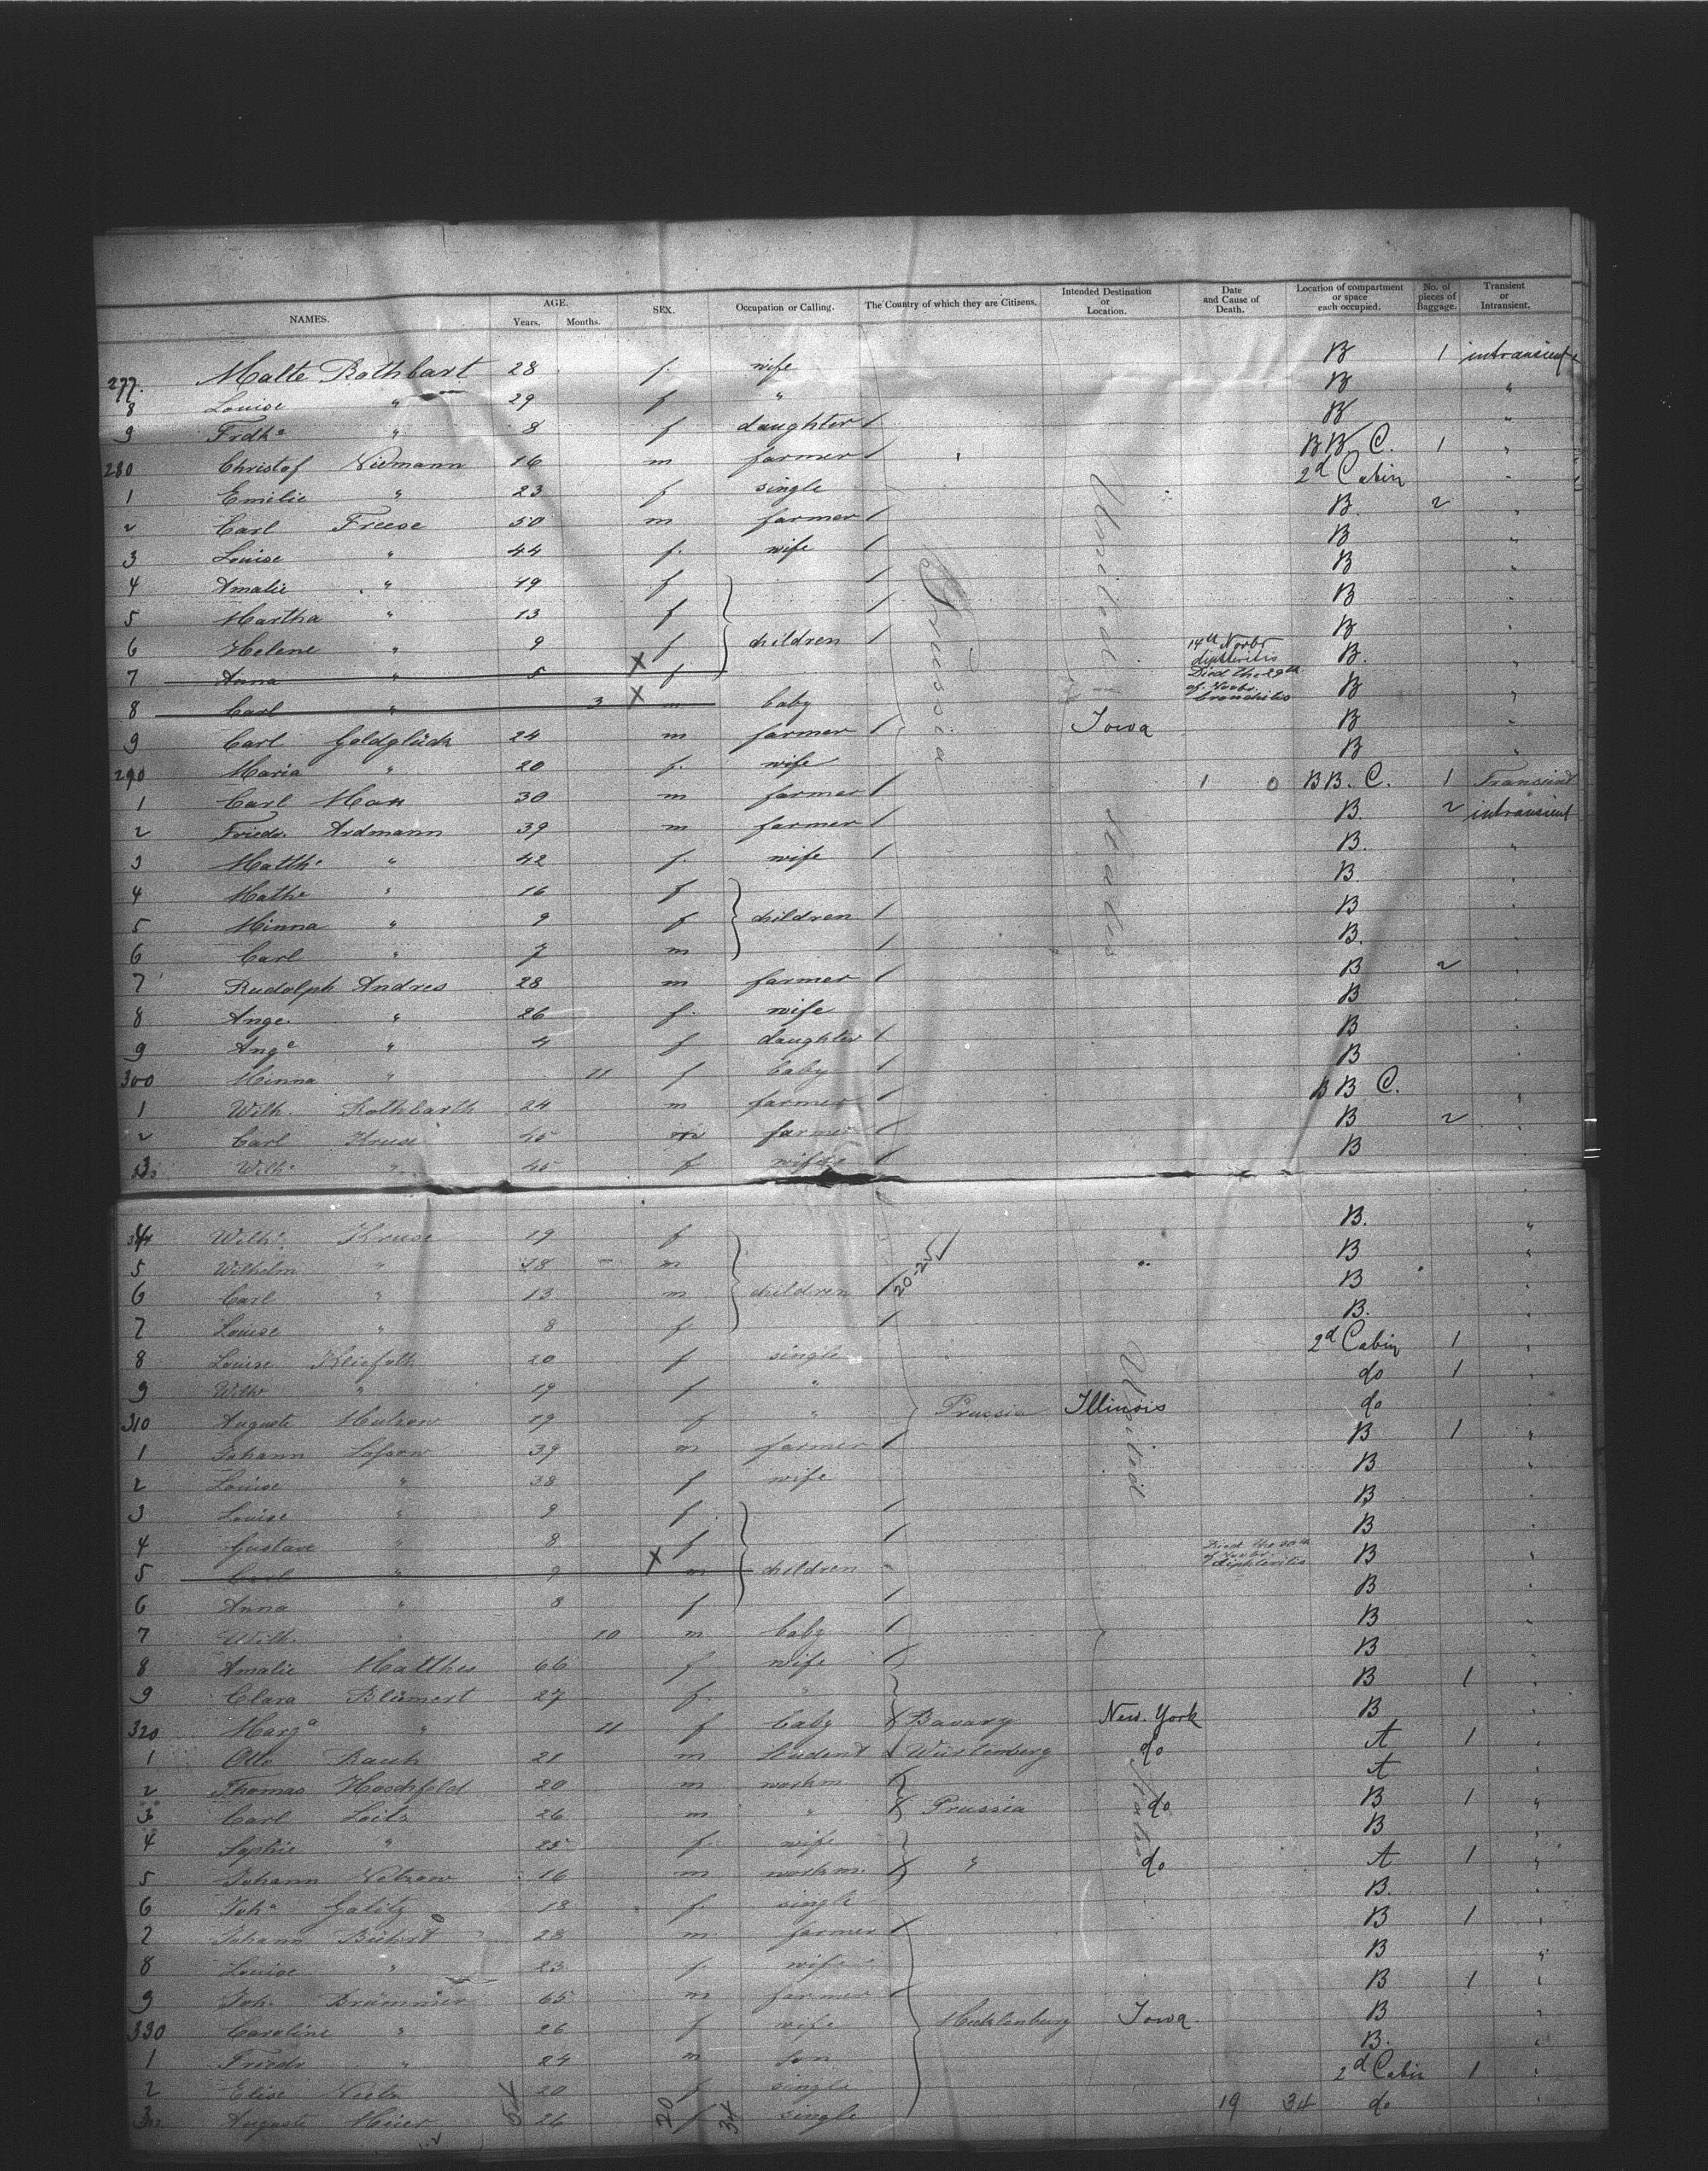 NAMES. AGE. Years. Months. SEX. Occupation or Calling. The Country of which they are Citizens. Intended Destination or Location. Date and Cause of Death. Location of compartment or space each occupied. No. of pieces of Baggage. Transient or Intransient.
277. Malte Rothbart 28 f. wife B 1 intransient
8 Louise " 29 f " B "
9 Frdke " 8 f daughter / B "
280 Christof Niemann 16 m farmer / BB. C. 1 "
1 Emilie " 23 f single 2d Cabin "
2 Carl Freese 50 m farmer / B. 2 "
3 Louise " 44 f. wife / B "
4 Amalie " 19 f / B "
5 Martha " 13 f / B "
6 Helene " 9 f children / B "
7 Anna " 5 X f 14th Novbr diphteritis B. "
8 Carl " 3 X m baby Died the 29th of Novbr. bronchitis B "
9 Carl Goldglück 24 m farmer / Prussia Iowa B "
290 Maria " 20 f. wife B "
1 Carl Mau 30 m farmer / 1 0 BB. C. 1 Transient
2 Friedr. Ardmann 39 m farmer / B. 2 intransient
3 Mathe " 42 f. wife / B. "
4 Mathe " 16 f B "
5 Minna " 9 f children / B "
6 Carl " 7 m / B. "
7 Rudolph Andres 28 m farmer / B 2 "
8 Ange. " 26 f. wife B "
9 Ange " 4 f daughter / B "
300 Minna " 11 f baby / B "
1 Wilh. Rothbarth 24 m farmer / BB C. "
2 Carl Kruse 45 m farmer / B 2 "
3 Wilhe " 45 f wife / B
United States
304 Wilhe Kruse 19 f B. "
5 Wilhelm " 18 m B "
6 Carl " 13 m children / 20-25 B "
7 Louise " 8 f / B. "
8 Louise Kliefoth 20 f single 2d Cabin 1 "
9 Wilhe " 19 f " do 1 "
310 Auguste 19 f " Prussia Illinois do
1 Johann 39 m farmer / B 1 "
2 Louise " 38 f wife B "
3 Louise " 9 f. / B "
4 Gustave " 8 f / B "
5 Carl " 9 X m children Died the 20th of Novbr. diphteritis B "
6 Anna " 8 f / B "
7 Wilh. " 10 m baby / B "
8 Amalie Matthes 66 f wife / B "
9 Clara Blümert 27 f. " B 1 "
320 Marga " 11 f baby Bavary New. York B "
1 Otto Bauch 21 m Student Würtemberg do A 1 "
2 Thomas Haschfeld 20 m workm. A "
3 Carl Loitz 26 m " Prussia do B 1 "
4 Sophie " 25 f. wife B "
5 Johann 16 m workm. " do A 1 "
6 Joha Galitz 18 f. single B. "
7 Johann 28 m. farmer / B 1 "
8 Louise " 23 f wife B "
9 Joh. Brümmer 65 m farmer / B 1 "
330 Caroline " 26 f wife Mecklenburg Iowa. B "
1 Friedr " 24 m son B. "
2 Elise 20 f single 2d Cabin 1 "
3 Auguste Meier 26 f single 19 34 do "
United States
54 20 34